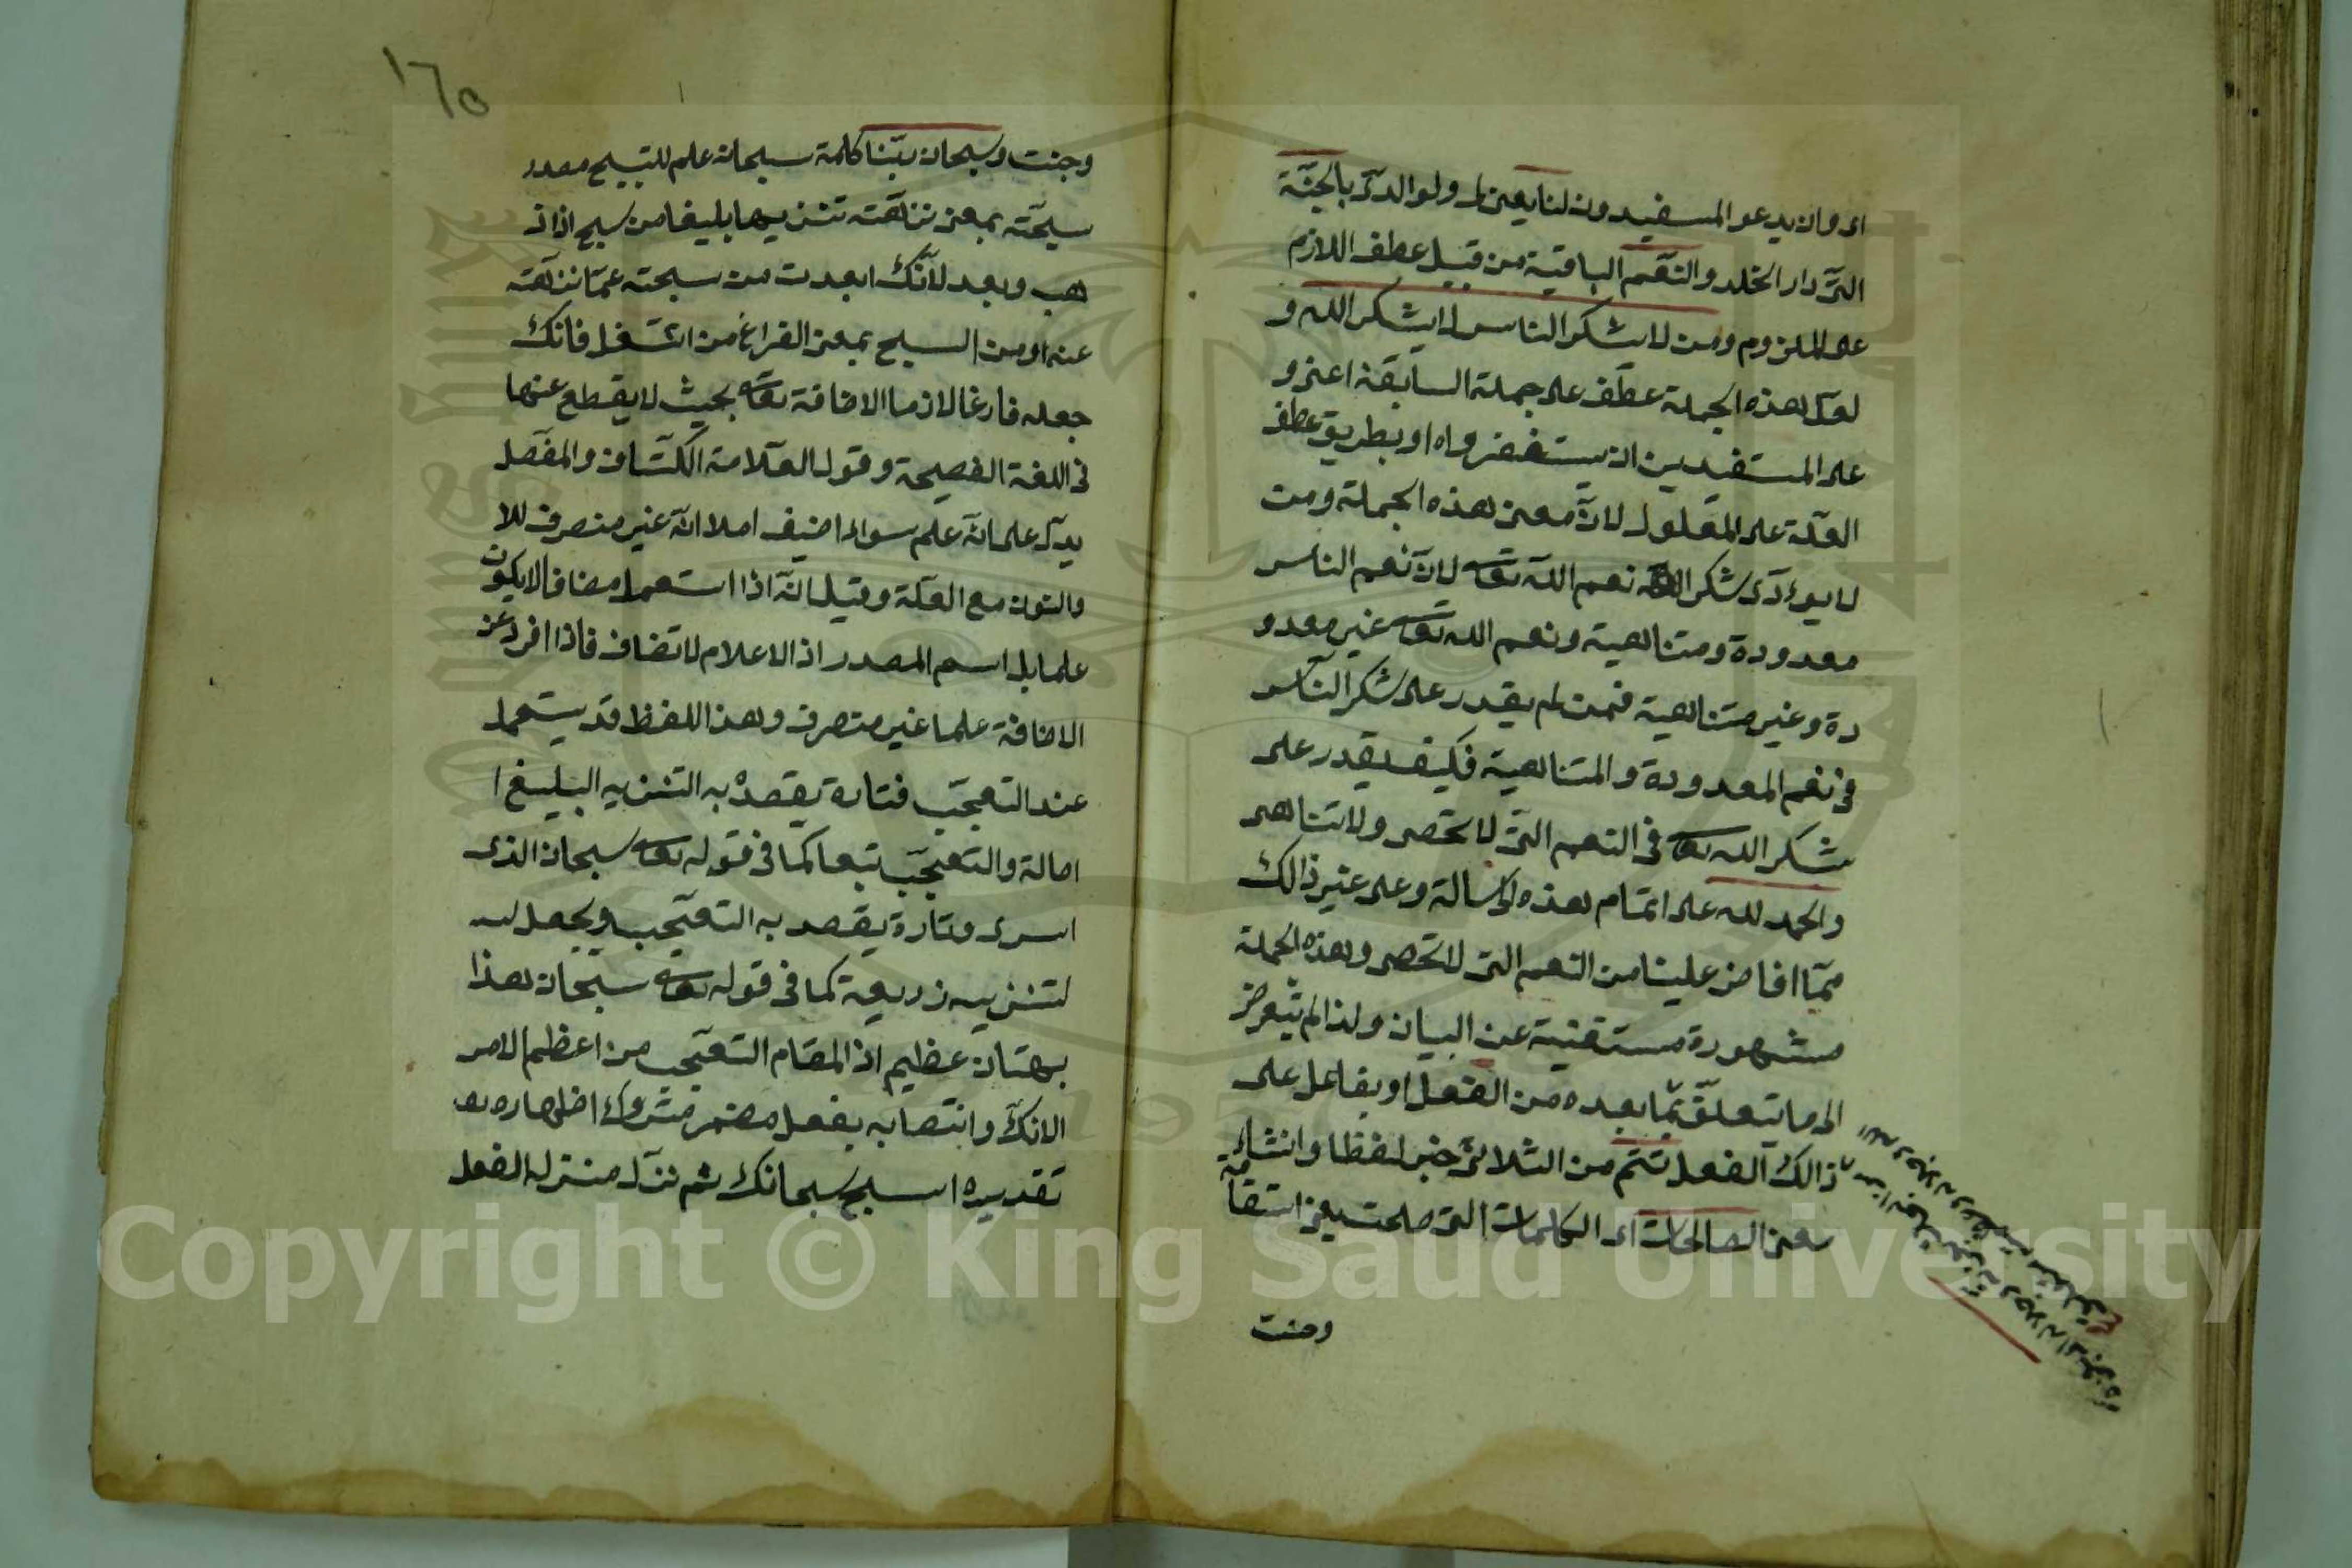 اى وان يدعو المسفيدون لنا يعنى لى ولوالدىّ بالجنّة
التى دار الخلد والنّعم الباقية من قبيل عطف اللازم
على الملزوم ومن لا يشكر الناس لا يشكر الله و
لعلّ هذه الجملة عطف على جملة السابقة اعنى و
على المستفيدين ان يستغفروا اه او بطريق عطف
العلة على المعلول لانّ معنى هذه الجملة ومن
لا يوءدّى شكر نعم الله تعا لانّ نعم الناس
معدودة ومتناهية ونعم الله تعا غير معدو
دة وغير متناهية فمن لم يقدر على شكر النّاس
فى نعم المعدودة والمتناهية فكيف يقدر على
شكر الله تعا فى النعم التى لا تحصى ولا تتناهى
والحمد لله على اتمام هذه الرسالة وعلى غير ذالك
ممّا افاض علينا من النعم التى لا تحصى وهذه الجملة
مشهورة مستغنية عن البيان ولذا لم يتعرض
الى ما يتعلّق بما بعده من الفعل او بفاعل على
ذالك الفعل تتم من الثلاثى خبر لفظا وانشاء
معنى الصالحات اى الكلمات التى صلحت يعنى استقامة
وحنت
١٦٥
وجنت وسبحان ربّنا كلمة سبحان علم للتسبيح مصدر
سبّحته بمعنى نزّهته تنزيها بليغا من سبح اذا ذ
هب وبعد لانّك ابعدت من سبحته عمّا نزّهته
عنه او من السبح بمعنى الفراغ من الشغل فانك
جعله فارغا لازما الاضافة تعا بحيث لا يقطع عنها
فى اللغة الفصيحة وقول العلامة الكشّاف والمفصّل
يدلّ على انّه علم سواء اضيف ام لا انّه غير منصرف للا
والنون مع العلّة وقيل انّه اذا استعمل مضافا لا يكون
علما بل اسم المصدر اذ الاعلام لا تضاف فاذا افرد عن
الاضافة علما غير منصرف وهذا اللفظ قد يستعمل
عند التعجّب فتارة يقصد به التنزيه البليغ ا
اصالة والتعجّب تبعا كما فى قوله تعا سبحان الذى
اسرى وتارة يقصد به التعجّب ويجعل لـ
لتنزيه ذريعة كما فى قوله تعا سبحان هذا
بهتان عظيم اذ المقام التعجّب من اعظم الامر
الافك وانتصابه بفعل مضمر متروك اظهاره
تقديره اسبح سبحانك ثم نزّل منزله الفعل